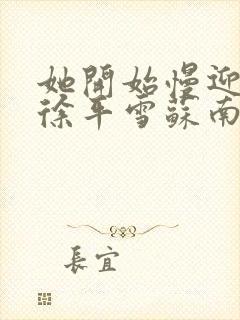 她開始慢迎
徐年雪蘇南
長宜